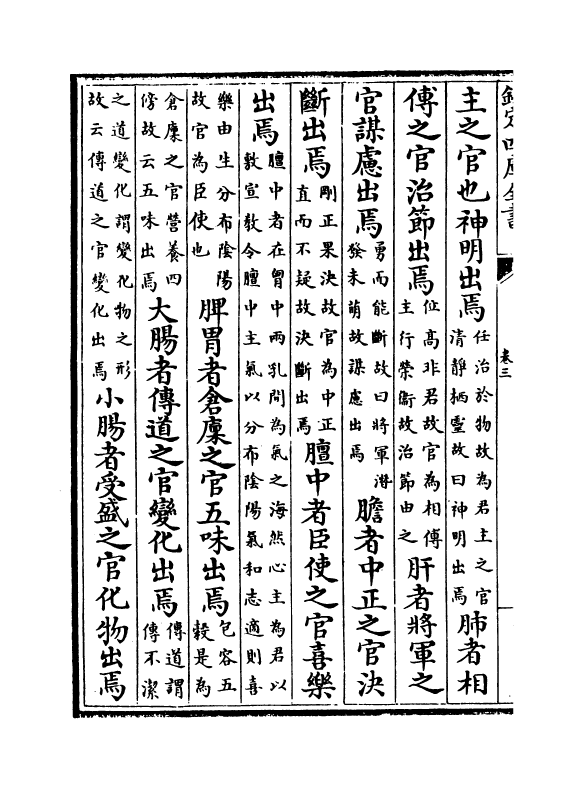 欽定四庫全書 卷三
主之官也神明出焉任治於物故為君主之官清靜栖靈故曰神明出焉肺者相
傅之官治節出焉位高非君故官為相傅主行榮衛故治節由之肝者將軍之
官謀慮出焉勇而能斷故曰將軍潛發未萌故謀慮出焉膽者中正之官決
斷出焉剛正果決故官為中正直而不疑故決斷出焉膻中者臣使之官喜樂
出焉膻中者在胷中兩乳間為氣之海然心主為君以敷宣教令膻中主氣以分布陰陽氣和志適則喜
樂由生分布陰陽故官為臣使也脾胃者倉廩之官五味出焉包容五穀是為
倉廩之官營養四傍故云五味出焉大腸者傳道之官變化出焉傳道謂傳不潔
之道變化謂變化物之形故云傳道之官變化出焉小腸者受盛之官化物出焉